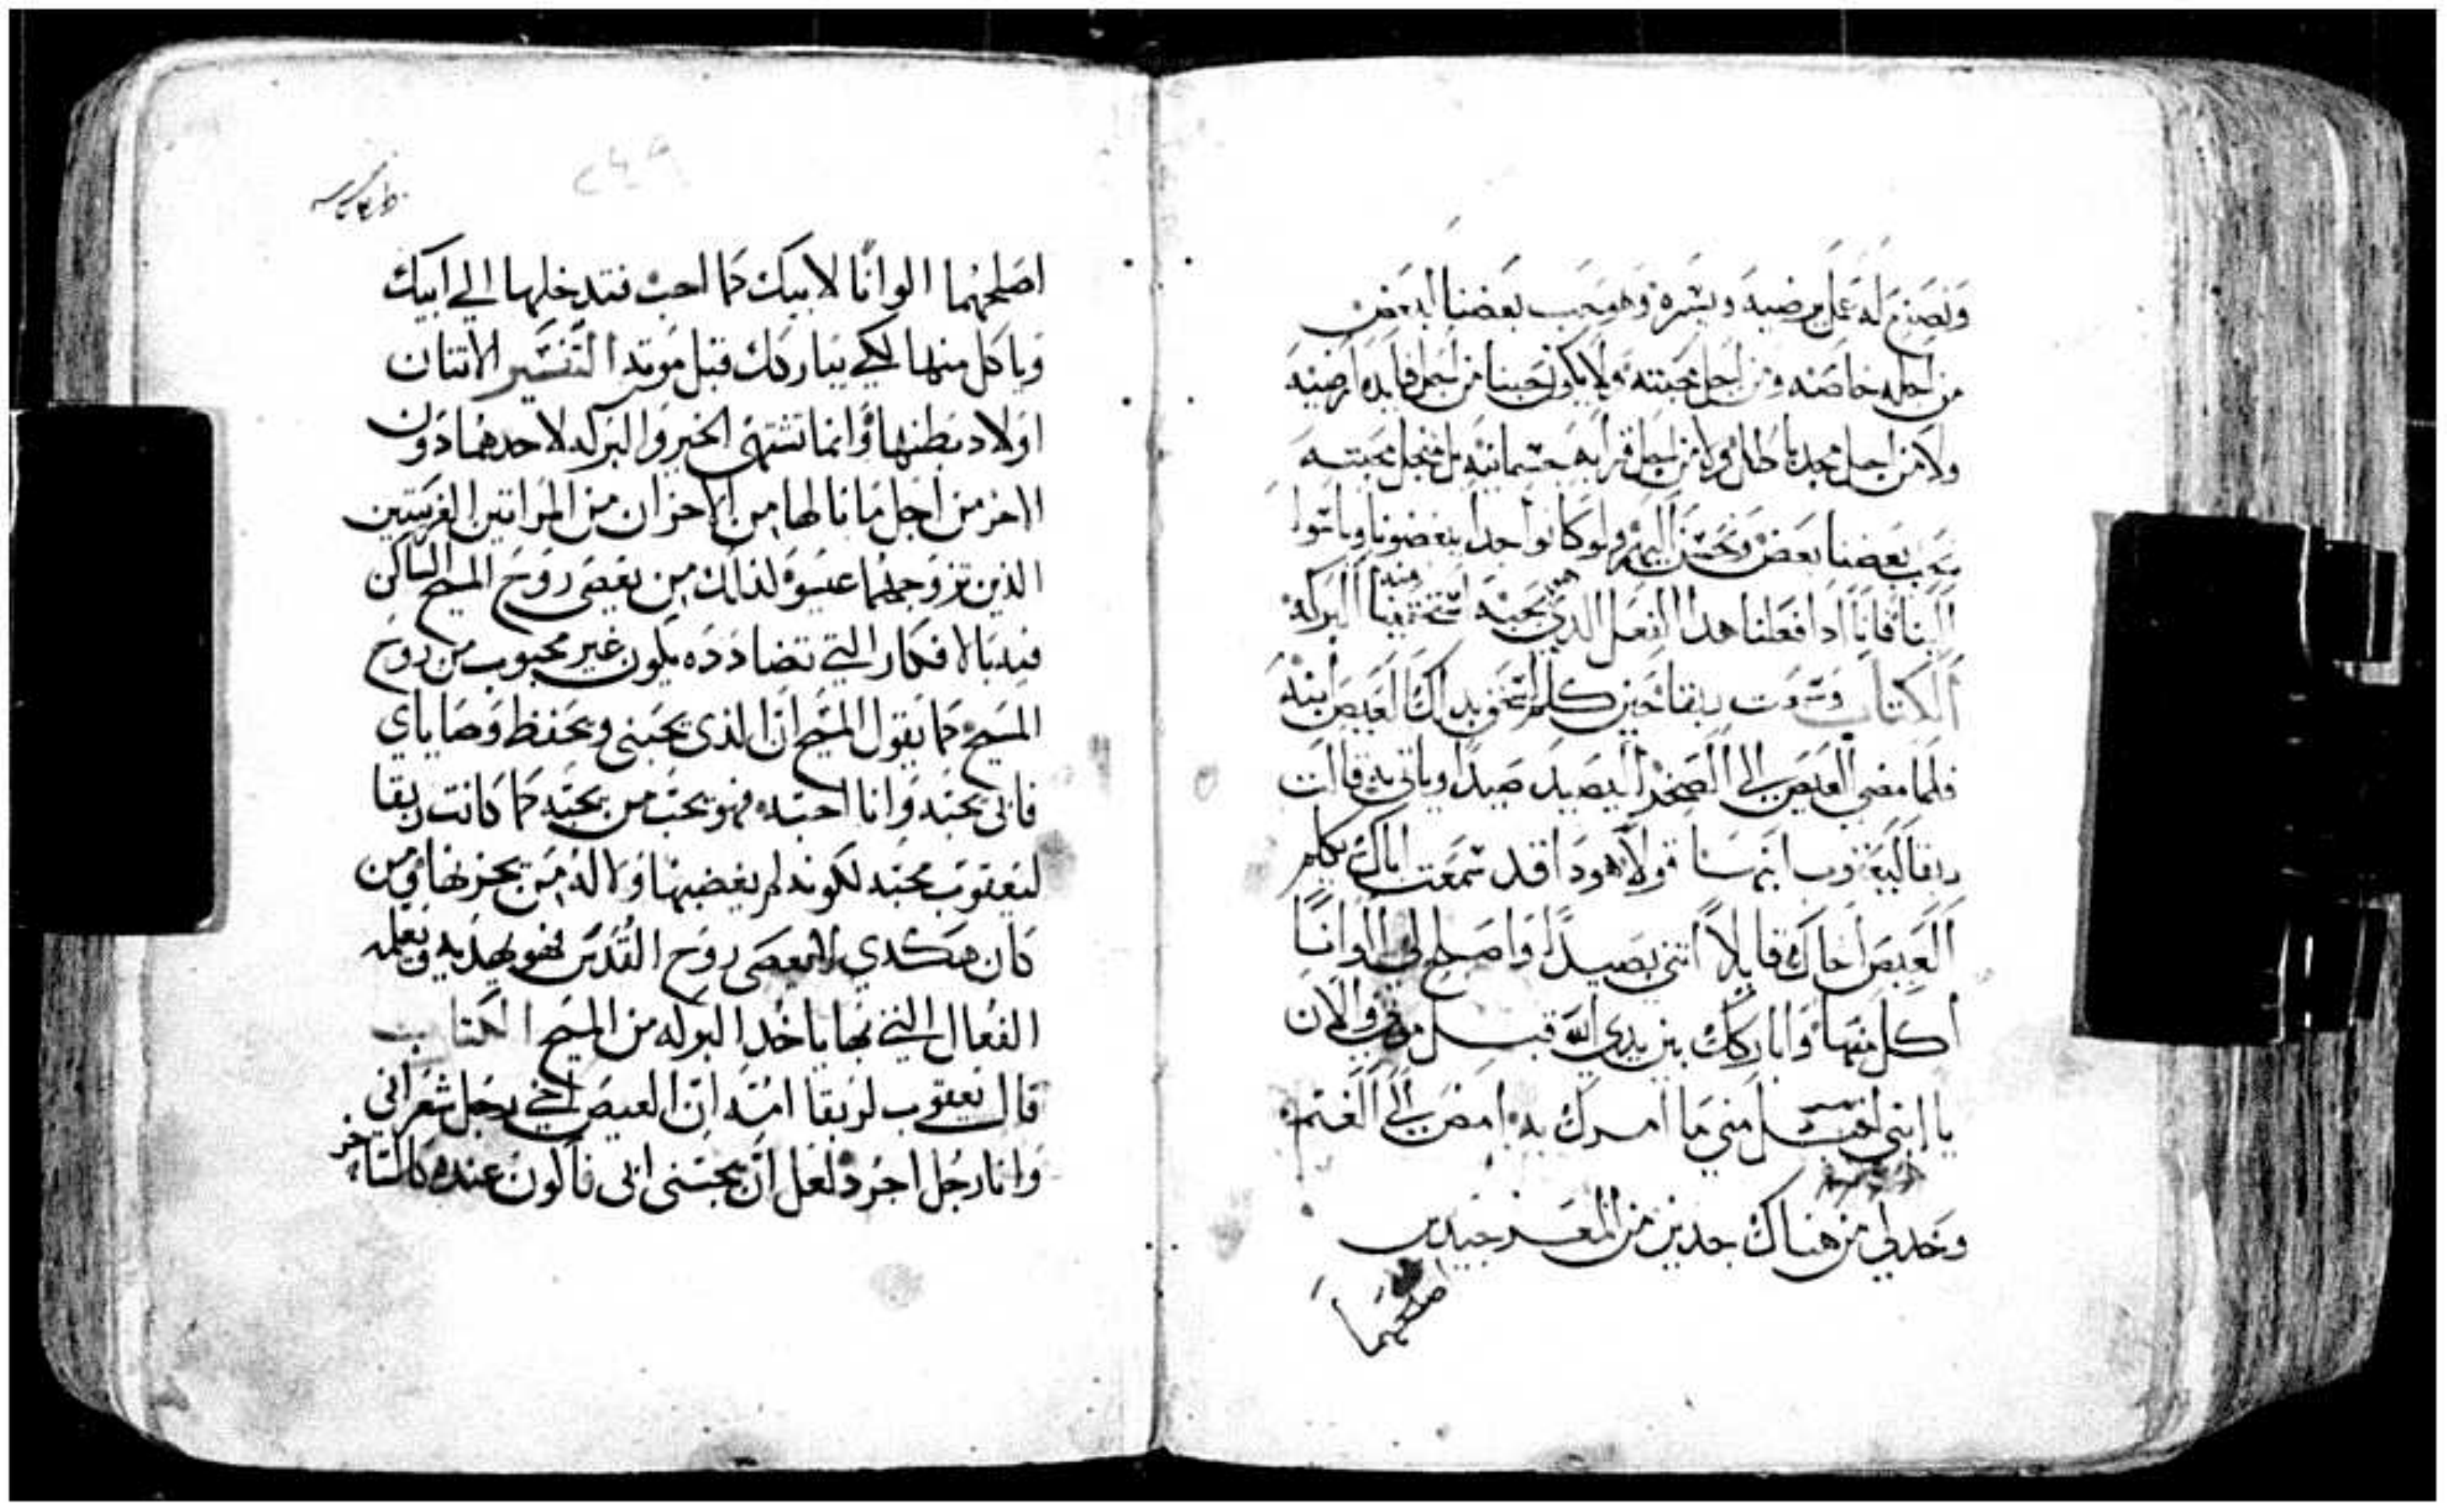 ونصنع له عمل يرضيه ويسره وهو يحب بعضنا لبعض
من اجله خاصه ومن اجل محبته ولا يكون حبنا من اجل فايده ارضيه
ولا من اجل مجد باطل ولا من اجل قرابه جسمانيه بل من اجل محبته
يحب بعضنا بعض ونحسن اليهم ولو كانوا اعدا يبغضونا وياتوا
الينا فانا اذا فعلنا هذا الفعل الذي يحبه استحقينا منه البركه
الكتاب وسمعت ربقا حين كلم اسحق بذلك العيص ابنه
فلما مضى العيص الى الصحرا ليصيد صيدا وياتي به قالت
ربقا ليعقوب ابنها قولا هوذا قد سمعت اباك يكلم
العيص اخاك قايلا اتني بصيدا واصلح لي الوانا
اكل منها واباركك بين يدي الله قبل موتي والان
يا ابني اقبل مني ما امرك به امض الى الغنم
وخد لي من هناك جديين من المعز جيدين
اصلحهما
٢٤٩
اصلحهما الوانا لابيك كما احب فتدخلها الي ابيك
وياكل منها لكي يباركك قبل موته التفسير الاتنان
اولاد بطنها وانما تشتهي الخير والبركه لاحدهما دون
الاخر من اجل ما نالها من الاحزان من المراتين الغريبتين
الذين تزوجهما عيسو لذلك من يعصى روح المسيح الساكن
فيه بالافكار التي تضادده يكون غير محبوب من روح
المسيح كما يقول المسيح ان الذى يحبني ويحفظ وصاياي
فابي يحبه وانا احبه فهو يحب من يحبه كما كانت ربقا
ليعقوب محبه لكونه لم يغضبها ولا له من يحزنها ومن
كان هكدي لا يعصى روح القدس فهو يهديه ويعلمه
الفعال التي بها ياخد البركه من المسيح الكتاب
قال يعقوب لربقا امه ان العيص اخي رجل شعراني
وانا رجل اجرد لعل ان يجسني ابي فاكون عنده كالساخر